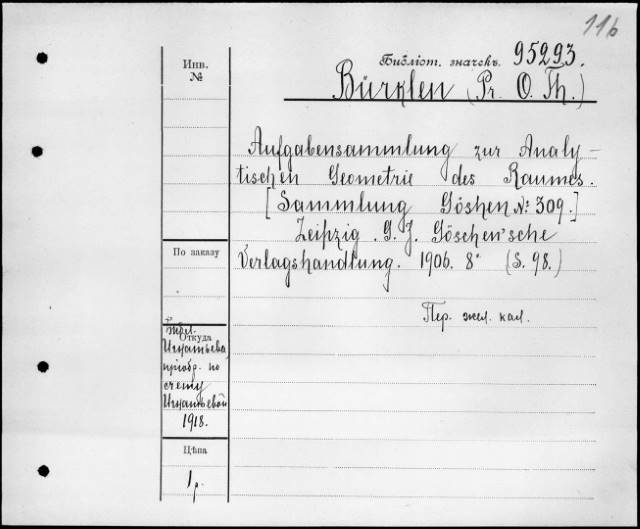 116
Библіот. значекъ 95293.
Bürklen (Pr. O. Th.)
Инв.
№
Aufgabensammlung zur Analy-
tischen Geometrie des Raumes.
[Sammlung Göshen №: 309.]
Leipzig. G. J. Göschen'sche
Verlagshandlung. 1906. 8° (S. 98.)
Пер. жел. кал.
По заказу
Откуда
Игнатьева,
приобр. по
счету
Игнатьевой
1918.
Цѣна
1 р.